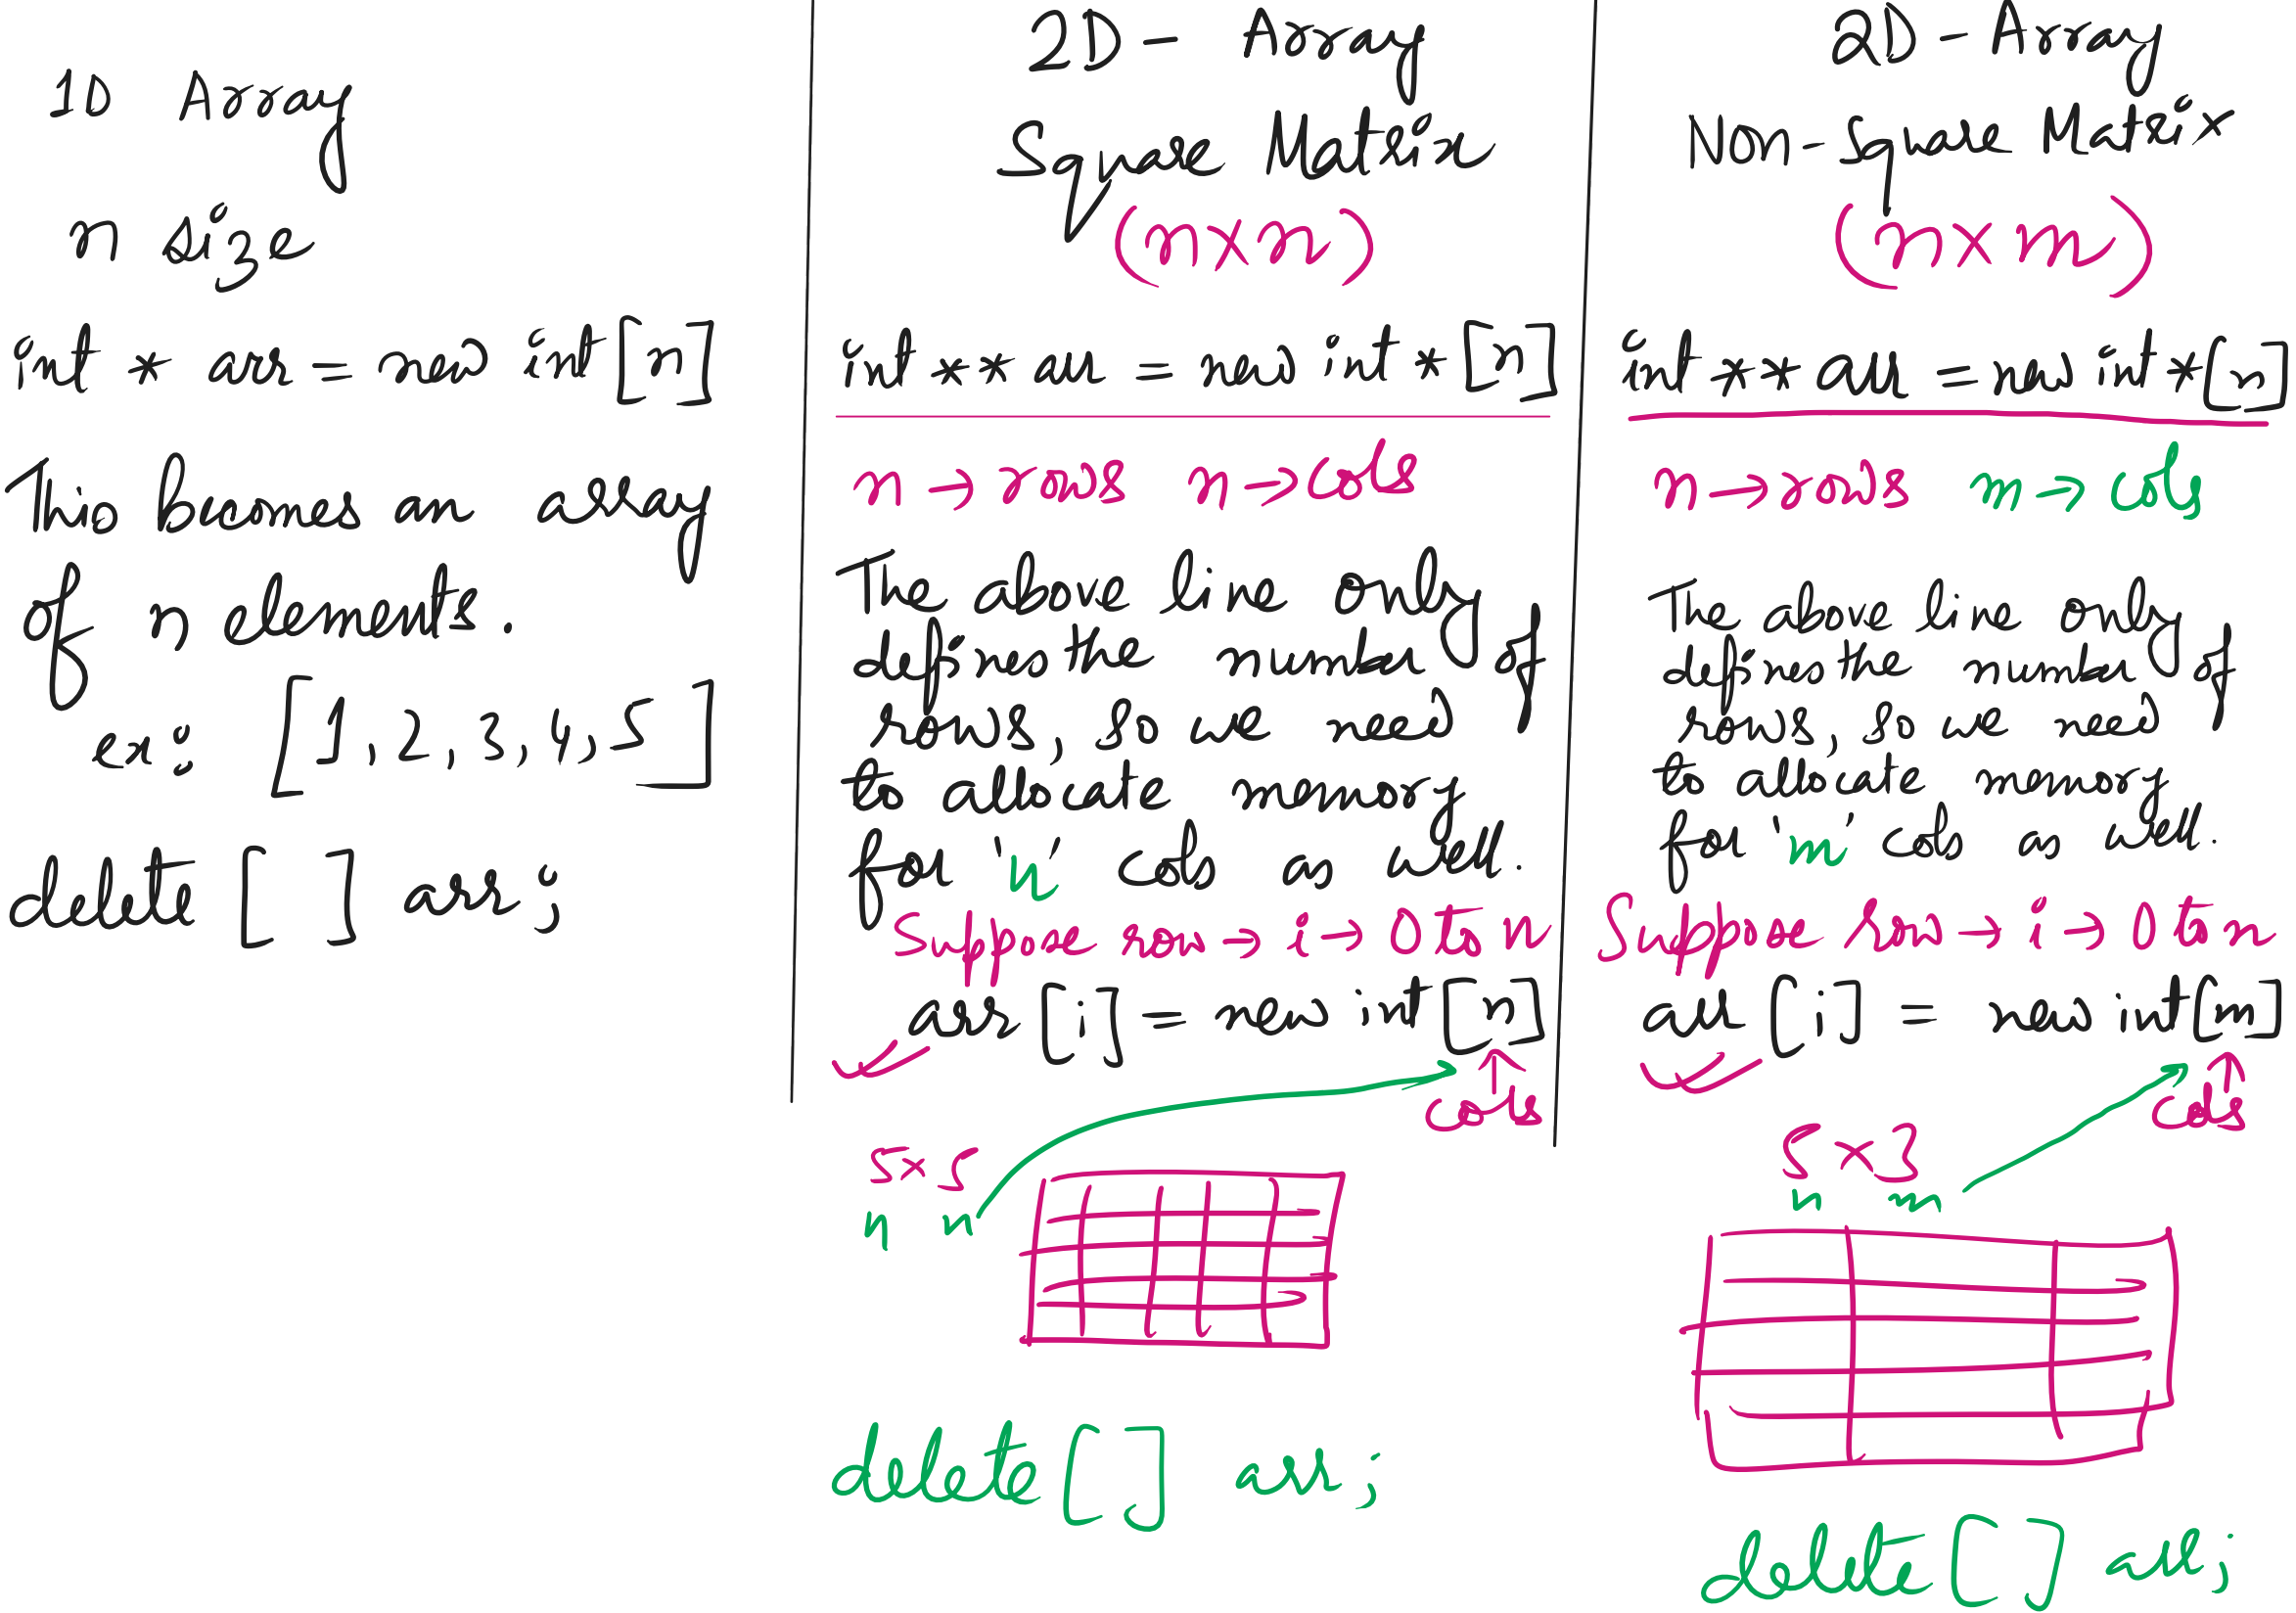 1D Array
n size
int * arr = new int[n]
This becomes an array
of n elements.
ex: [1, 2, 3, 4, 5]
delete [ ] arr;
2D - Array
Square Matrix
(n×n)
int ** arr = new int * [n]
n → rows n → cols
The above line only
defines the number of
rows, so we need
to allocate memory
for 'n' cols as well.
Suppose row → i → 0 to n
arr [i] = new int [n]
cols
5×5
n n
delete [ ] arr;
2D - Array
Non - Square Matrix
(n×m)
int ** arr = new int * [n]
n → rows m → cols
The above line only
defines the number of
rows, so we need
to allocate memory
for 'm' cols as well.
Suppose row → i → 0 to n
arr [i] = new int [m]
cols
5×3
n m
delete [ ] arr;